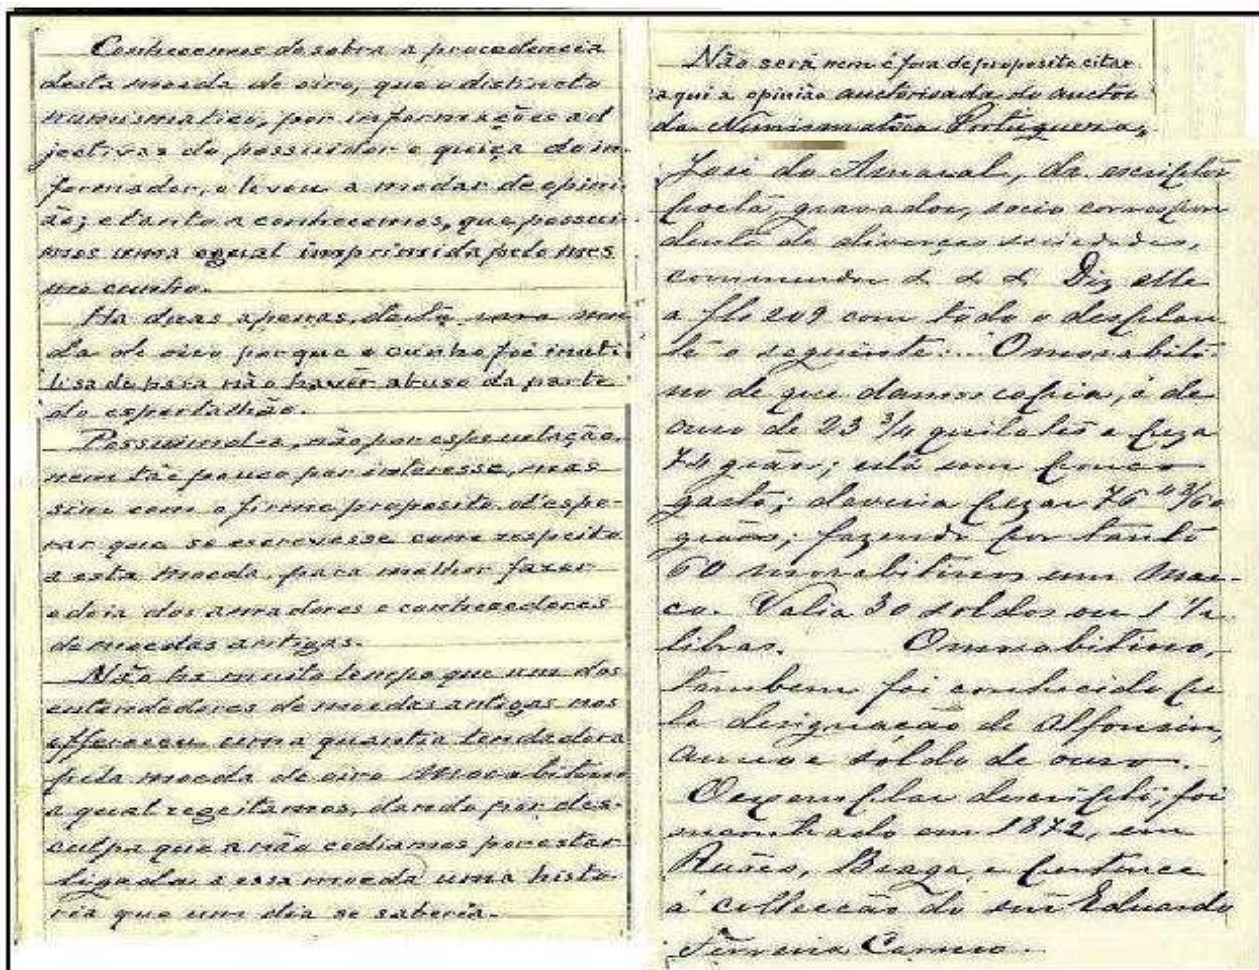 Conhecemos de sobra a procedencia
desta moeda de oiro, que o distincto
numismatico, por informações ad
jectivas do possuidor e quiçá do in-
formador, o levou a mudar de opini-
ão; e tanto a conhecemos, que possui-
mos uma egual imprimida pelo mes
mo cunho.
Ha duas apenas, desta rara moe
da de oiro porque o cunho foi inuti
lisado para não haver abuso da parte
do espertalhão.
Possuimol-a, não por especulação,
nem tão pouco por interesse, mas
sim com o firme proposito d'espe-
rar que se escrevesse com respeito
a esta moeda, para melhor fazer
ideia dos amadores e conhecedores
de moedas antigas.
Não ha muito tempo que um dos
entendedores de moedas antigas nos
offereceu uma quantia tendadora
pela moeda de oiro Morabitino
a qual regeitamos, dando por des-
culpa que a não cediamos por estar
ligada a essa moeda uma histo
ria que um dia se saberia.
Não será nem é fora de proposito citar
aqui a opinião auctorisada do auctor
da Numismatica Portugueza,
José do Amaral, da escriptor
poeta, gravador, socio correspon
dente de diverças sociedades,
commendor & & & Diz elle
a fls 209 com todo o desplan-
te o seguinte: "O morabiti-
no de que damos copia, é de
ouro de 23 3/4 quilates e peza
74 grãos; está um pouco
gasto; deveria pezar 76 43/60
grãos; fazendo por tanto
60 morabitinos um mar-
co. Valia 30 soldos ou 1 1/2
libras. O morabitino,
tambem foi conhecido pe
la designação de Alfonsin,
aureo e soldo de ouro.
O exemplar descripto, foi
em 1872, em
Braga, e pertence
á collecção do snr Eduardo
Ferreira Carmo.